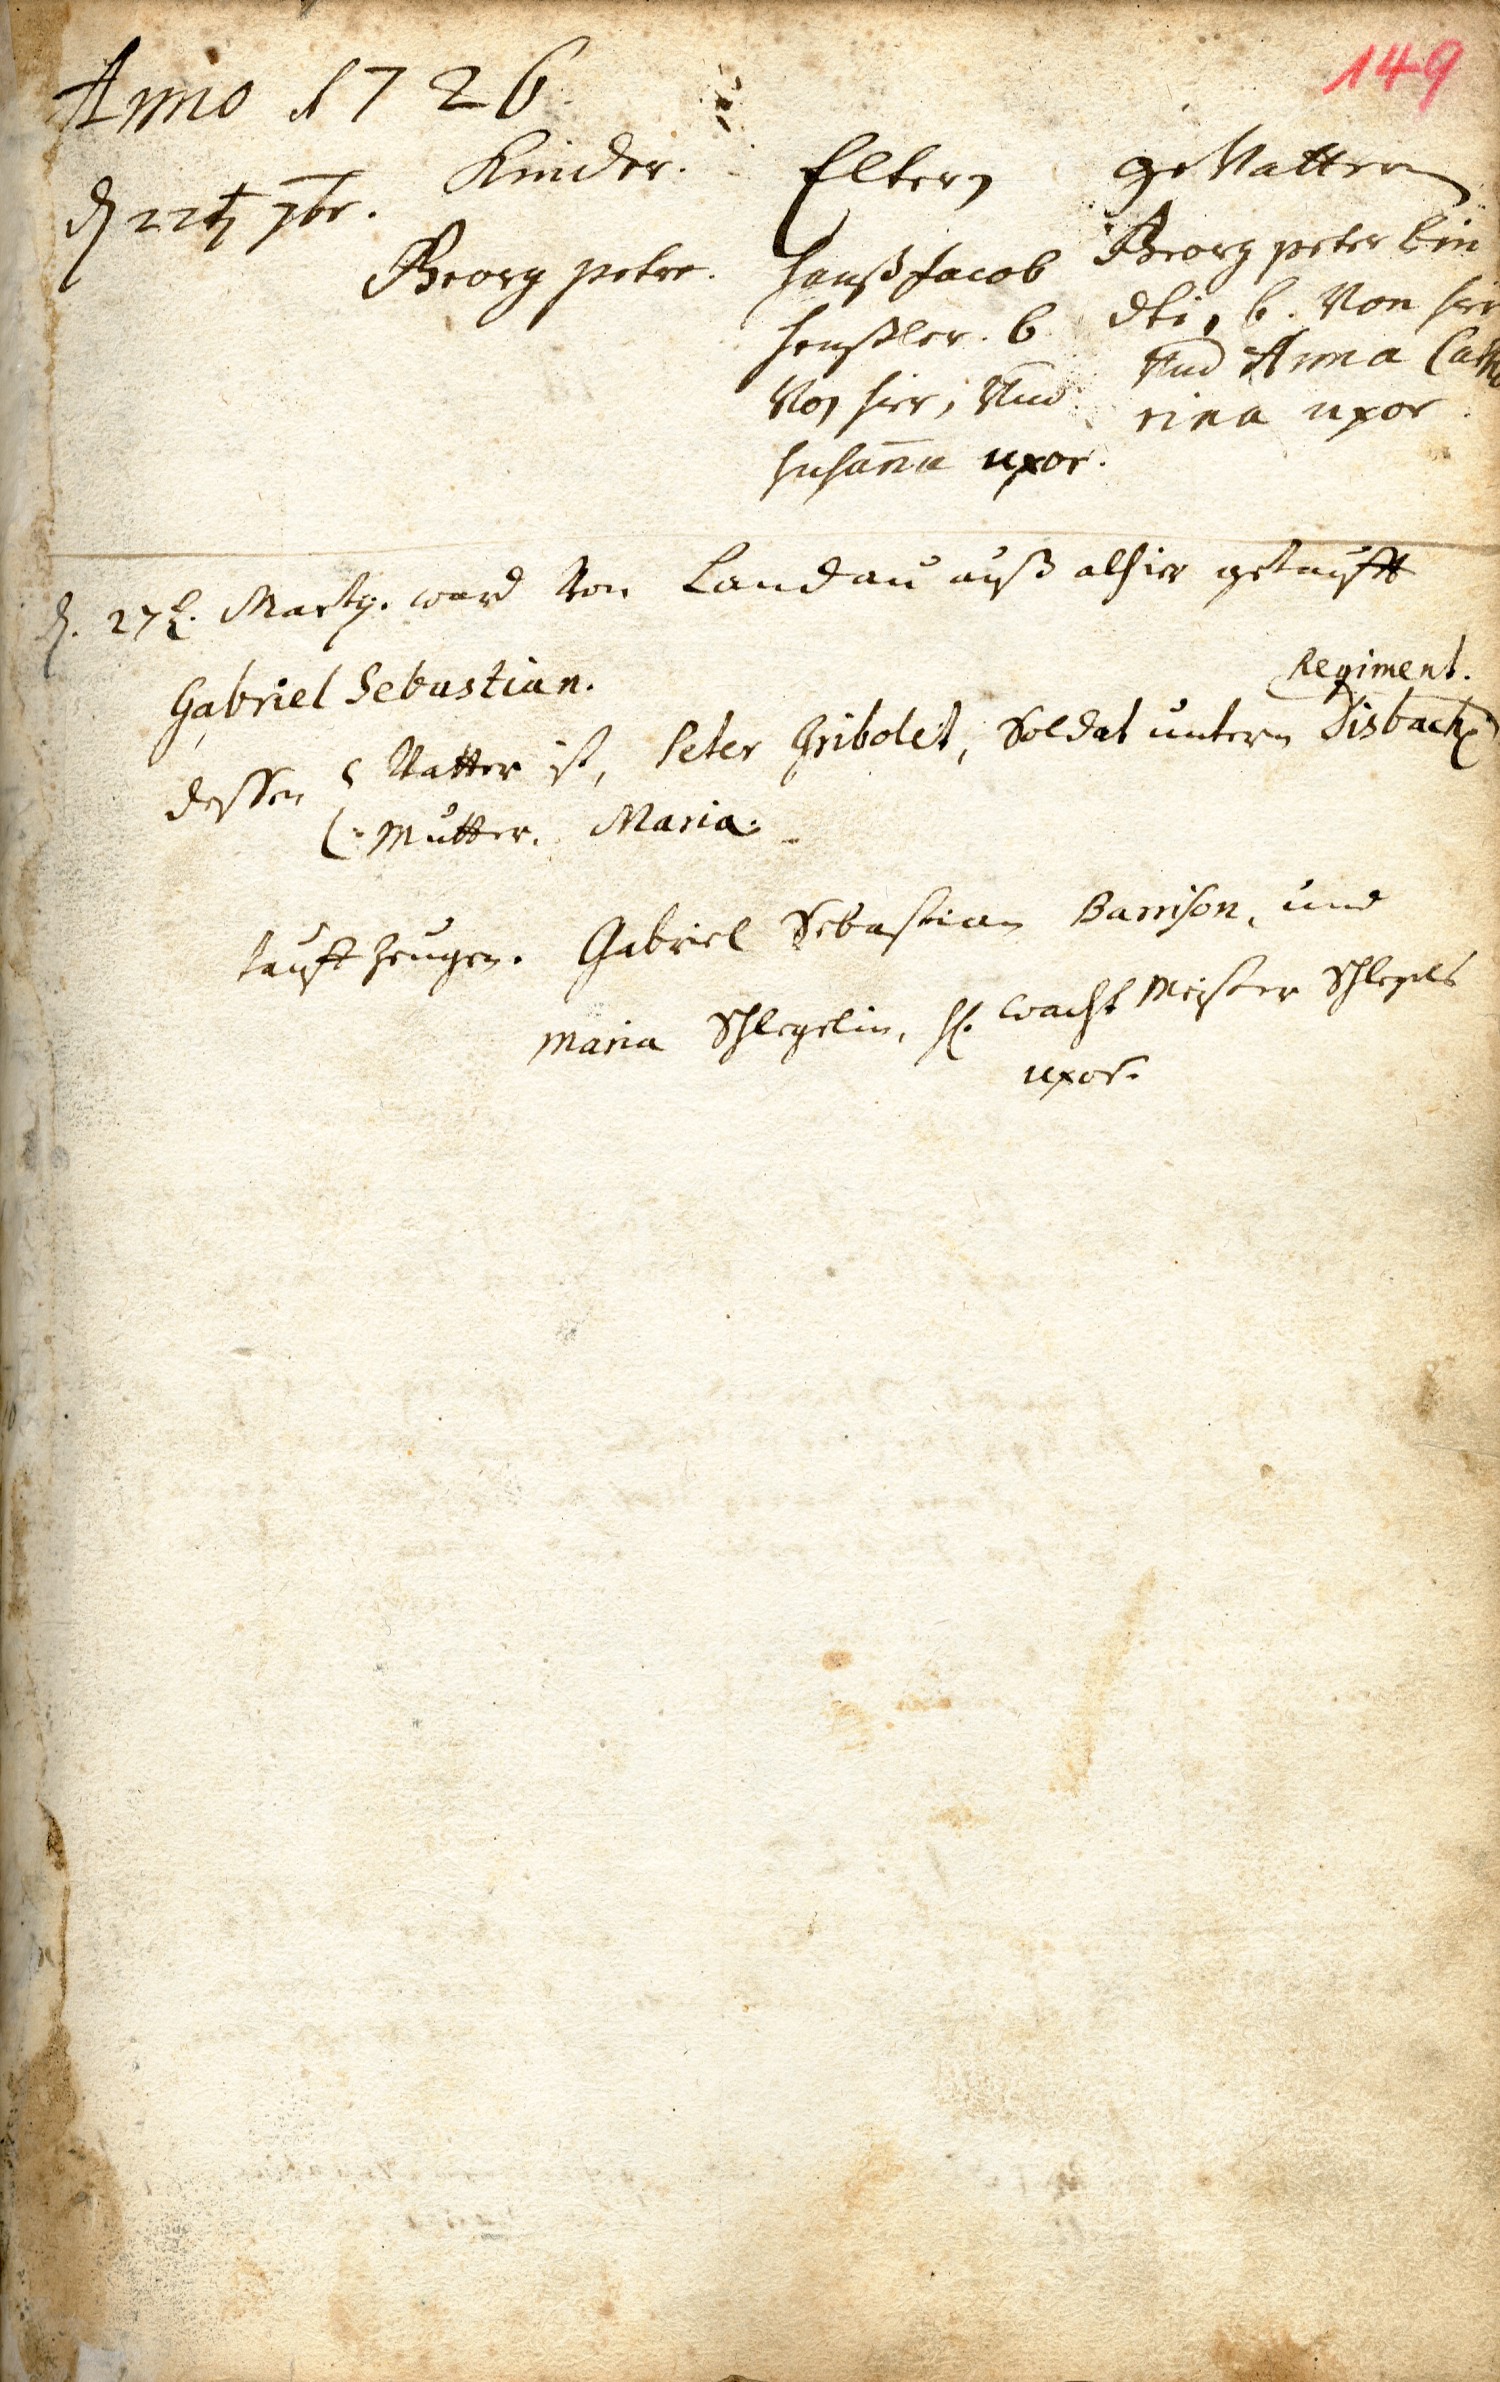 149
Anno 1726.
Kinder. Eltern geVattern
d 22t 7br.
Georg peter. Hanß Jacob Georg peter Lin
Henßler. b dti, b. Von hier
Von hier, Und Und Anna Catha
Susan̄a uxor. rina uxor.
d. 27t. Martÿ. ward Von Landau auß alhier getaufft
Gabriel Sebastian.
Regiment.
dessen Vatter ist, Peter Gribolet, Soldat untern Disbach
Mutter. Maria.
tauff Zeugen. Gabriel Sebastian Barrison, und
Maria Schlegelin, H. Wacht Meister Schlegels
uxor.